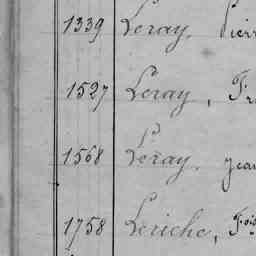 1339 Leray, Pierr
1527 Leray, Fr
1568 Leray, jean
1758 Leriche, Fois